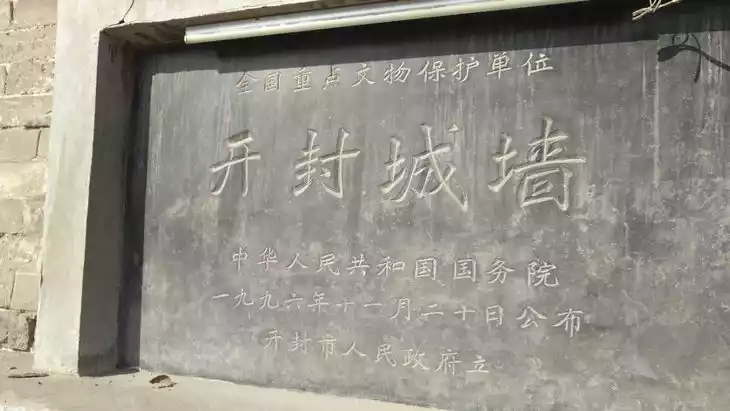 全国重点文物保护单位
开封城墙
中华人民共和国国务院
一九九六年十一月二十日公布
开封市人民政府立